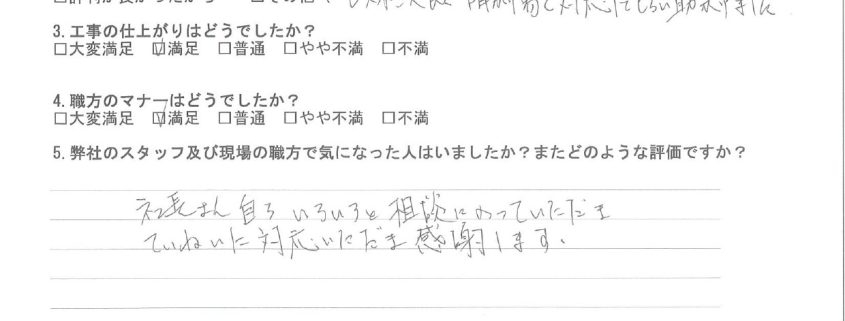 3.工事の仕上がりはどうでしたか？
□大変満足 ☑満足 □普通 □やや不満 □不満
4.職方のマナーはどうでしたか？
□大変満足 ☑満足 □普通 □やや不満 □不満
5.弊社のスタッフ及び現場の職方で気になった人はいましたか？またどのような評価ですか？
社長さん自ら いろいろと相談にのっていただき
ていねいに対応いただき感謝します.